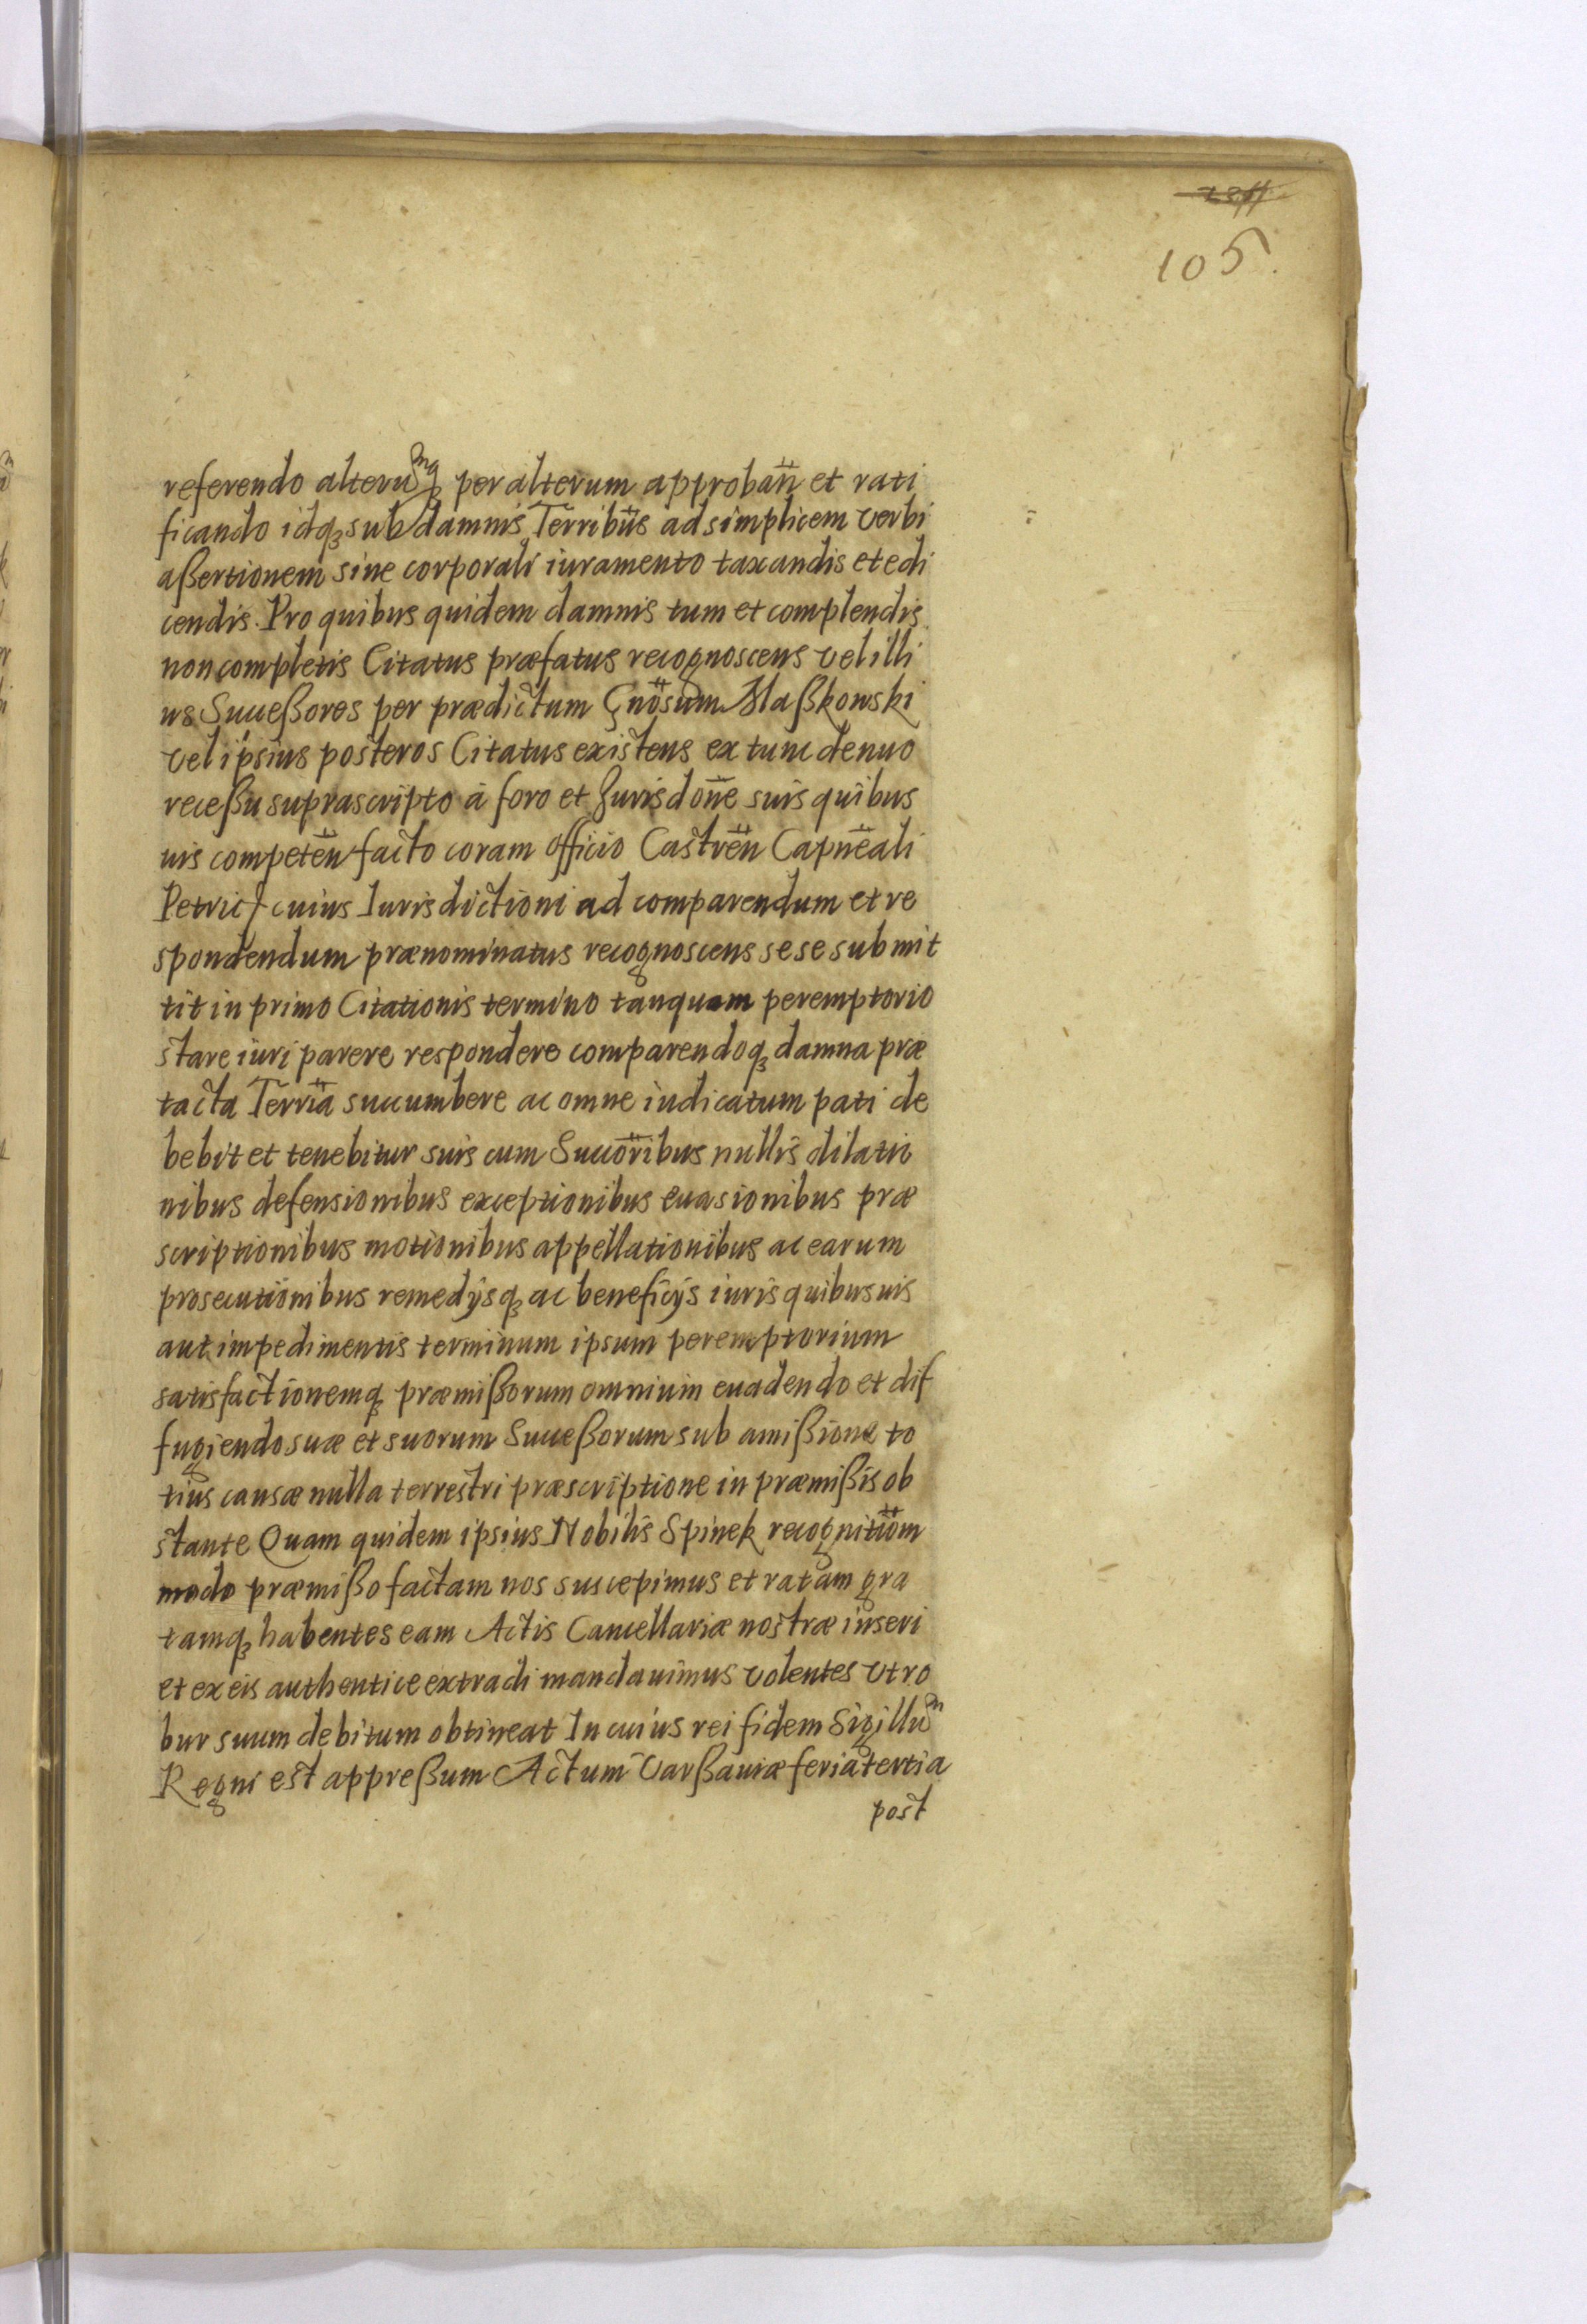 105.
referendo alterumq per alterum approbañ et rati
ficando idq sub damnis Terribüs ad simplicem verbi
aßertionem sine corporali iuramento taxandis et edi
cendis. Pro quibus quidem damnis tum et complendis
non completis Citatus præfatus recognoscens vel illi
us Succeßores per prædictum Gnosum Maßkowski
vel ipsius posteros Citatus existens ex tunc denuo
receßu suprascripto à foro et Jurisdone suis quibus
uis competeñ facto coram officio Castreñ Capneali
Petric cuius Iurisdictioni ad comparendum et re
spondendum prænominatus recognoscens sese submit
tit in primo Citationis termino tanquam peremptorio
stare iuri parere respondere comparendoq damna præ
tacta Terria succumbere ac omne iudicatum pati de
bebit et tenebitur suis cum Succoribus nullis dilatio
nibus defensionibus exceptionibus euasionibus præ
scriptionibus motionibus appellationibus ac earum
prosecutionibus remedijsq ac beneficijs iuris quibusuis
aut impedimentis terminum ipsum peremptorium
satisfactionemq præmißorum omnium euadendo et dif
fugiendo suæ et suorum Succeßorum sub amißione to
tius causæ nulla terrestri præscriptione in præmißis ob
stante Quam quidem ipsius Nobilis Spinek recognitiom
modo præmißo factam nos suscepimus et ratam gra
tamq habentes eam Actis Cancellariæ nostræ inseri
et ex eis authentice extradi mandauimus volentes vt ro
bur suum debitum obtineat In cuius rei fidem Sigillum
Regni est appreßum Actum Varßauiæ feria tertia
post